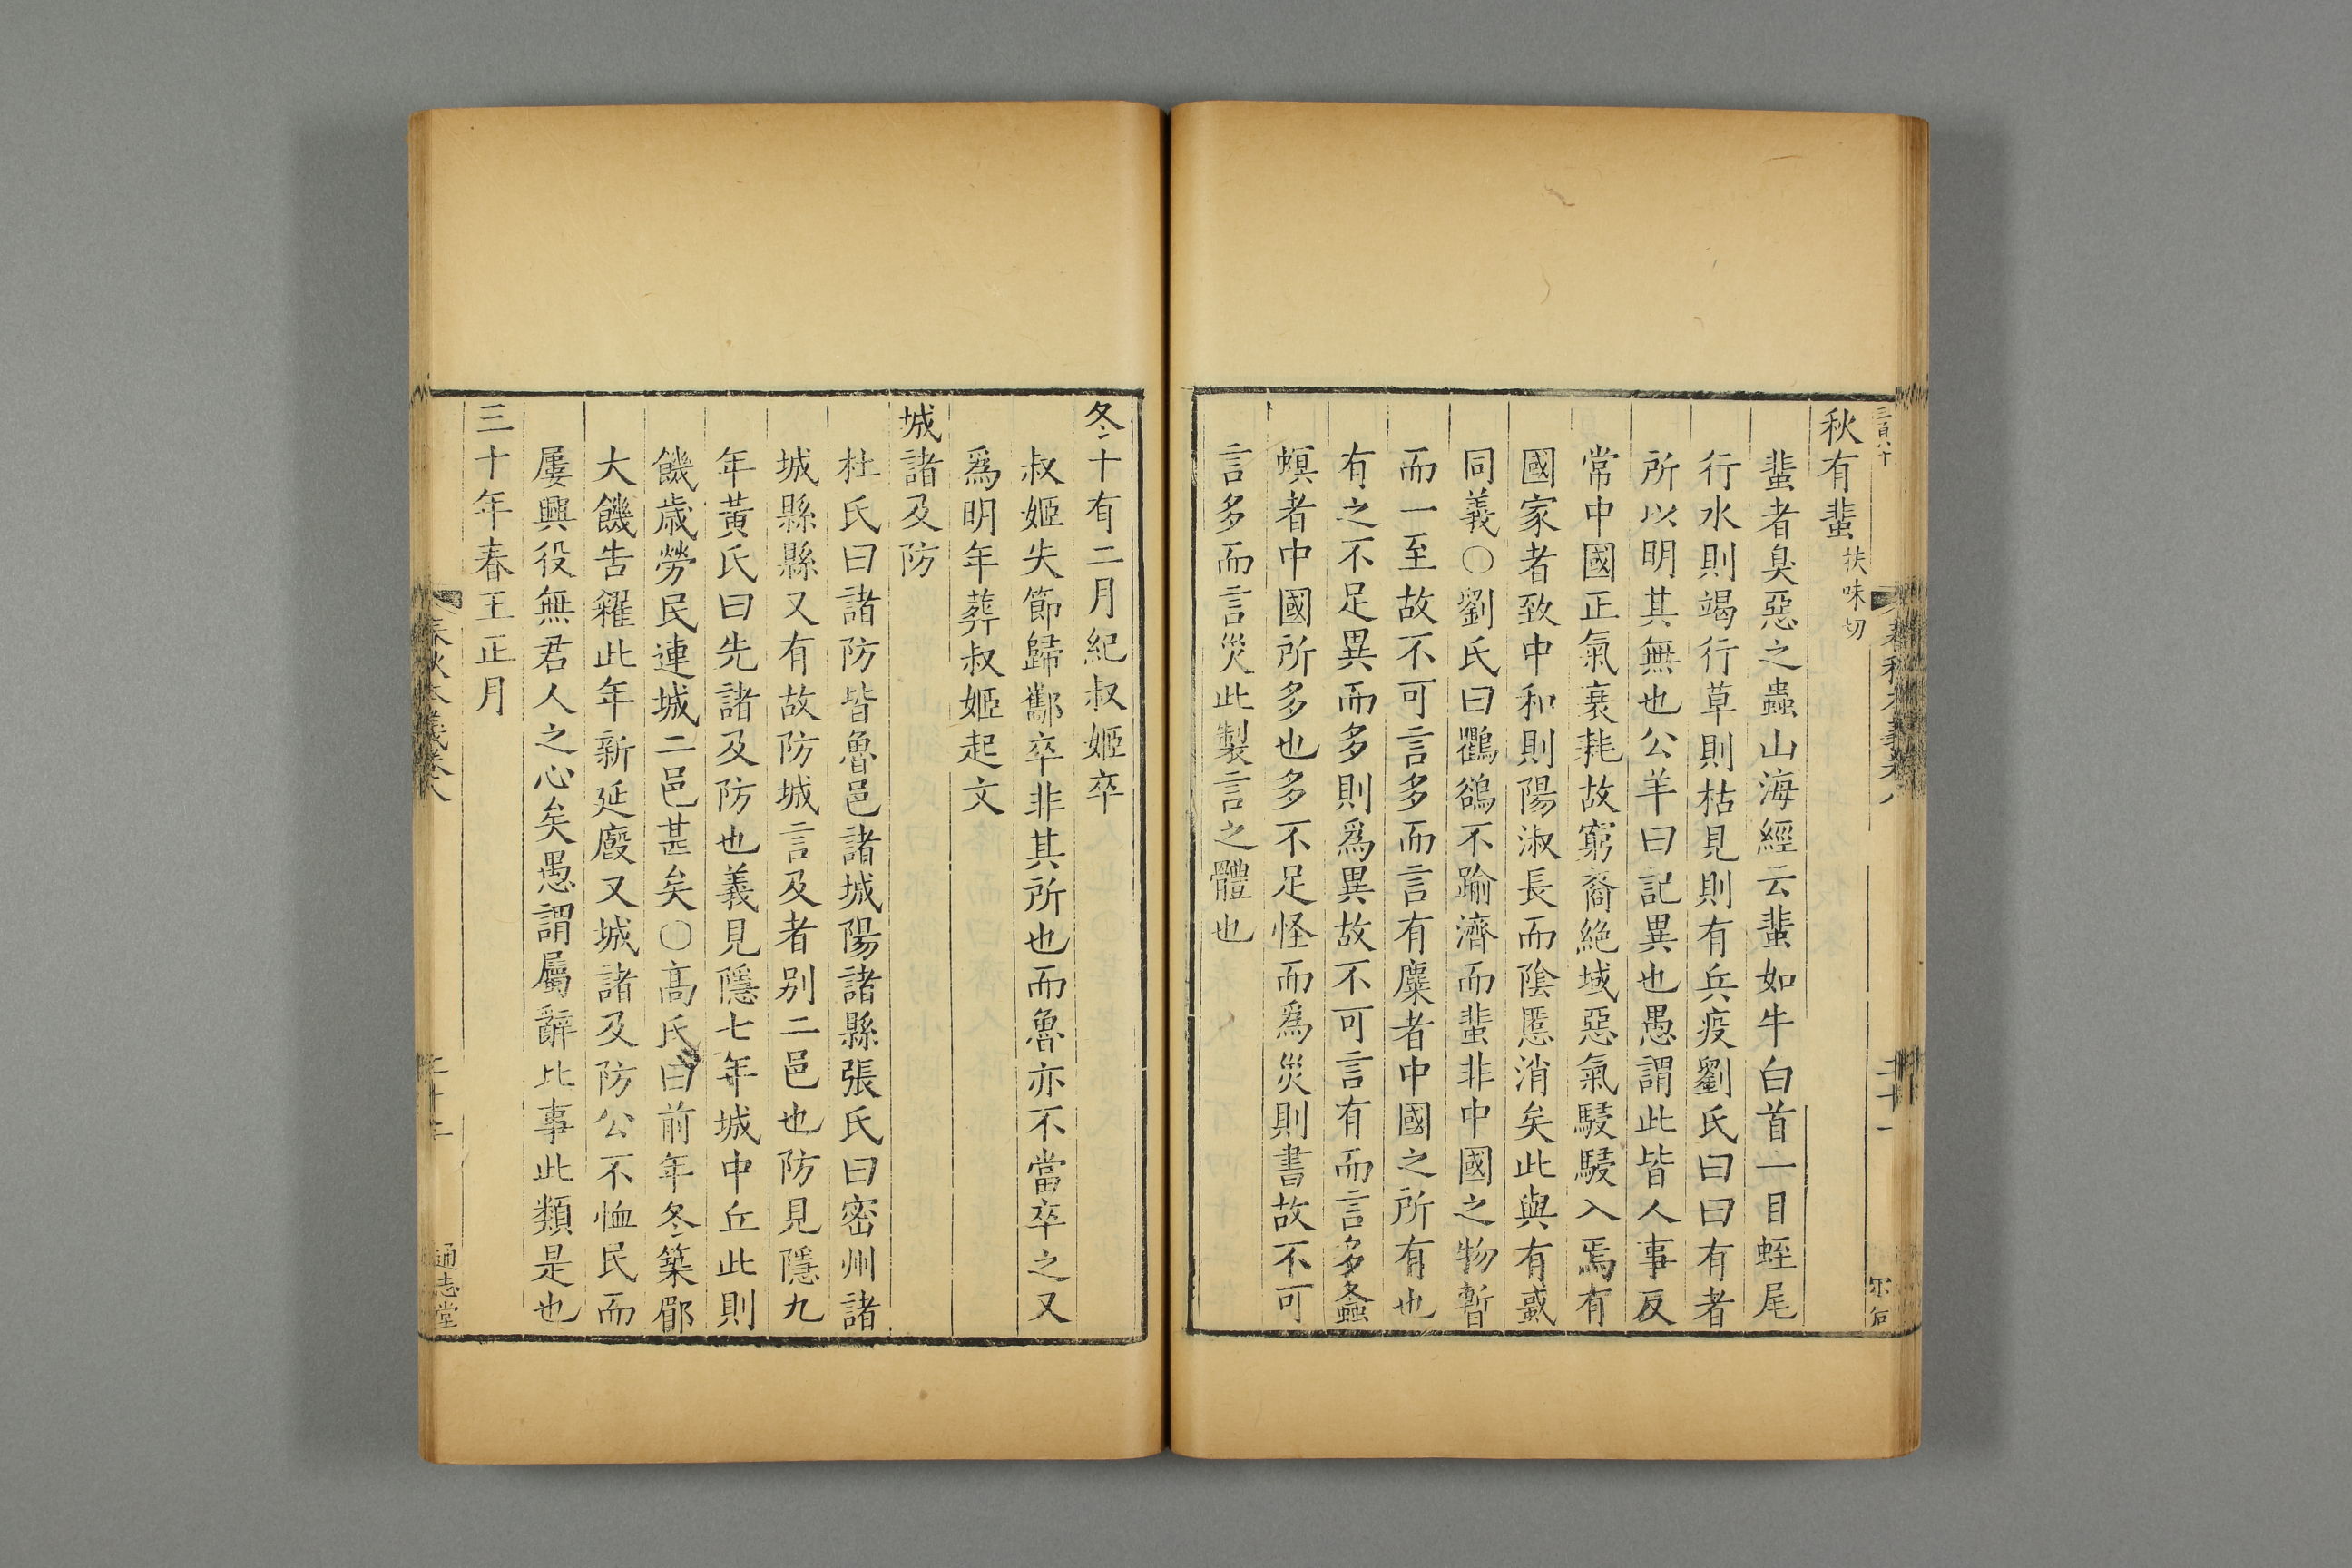 三百八十
秋有蜚扶味切
蜚者臭惡之蟲山海經云蜚如牛白首一目蛇尾
行水則竭行草則枯見則有兵疫劉氏曰曰有者
所以明其無也公羊曰記異也愚謂此皆人事反
常中國正氣衰耗故窮裔絶域惡氣駸駸入焉有
國家者致中和則陽淑長而陰慝消矣此與有蜮
同義○劉氏曰鸜鵒不踰濟而蜚非中國之物暫
而一至故不可言多而言有麋者中國之所有也
有之不足異而多則爲異故不可言有而言多螽
螟者中國所多也多不足怪而爲災則書故不可
言多而言災此製言之體也
春秋本義卷八
二十一
冬十有二月紀叔姬卒
叔姬失節歸酅卒非其所也而魯亦不當卒之又
爲明年葬叔姬起文
城諸及防
杜氏曰諸防皆魯邑諸城陽諸縣張氏曰密州諸
城縣縣又有故防城言及者别二邑也防見隱九
年黃氏曰先諸及防也義見隱七年城中丘此則
饑歲勞民連城二邑甚矣○高氏曰前年冬築郿
大饑告糴此年新延廄又城諸及防公不恤民而
屢興役無君人之心矣愚謂屬辭比事此類是也
三十年春王正月
春秋本義卷八
二十二
通志堂